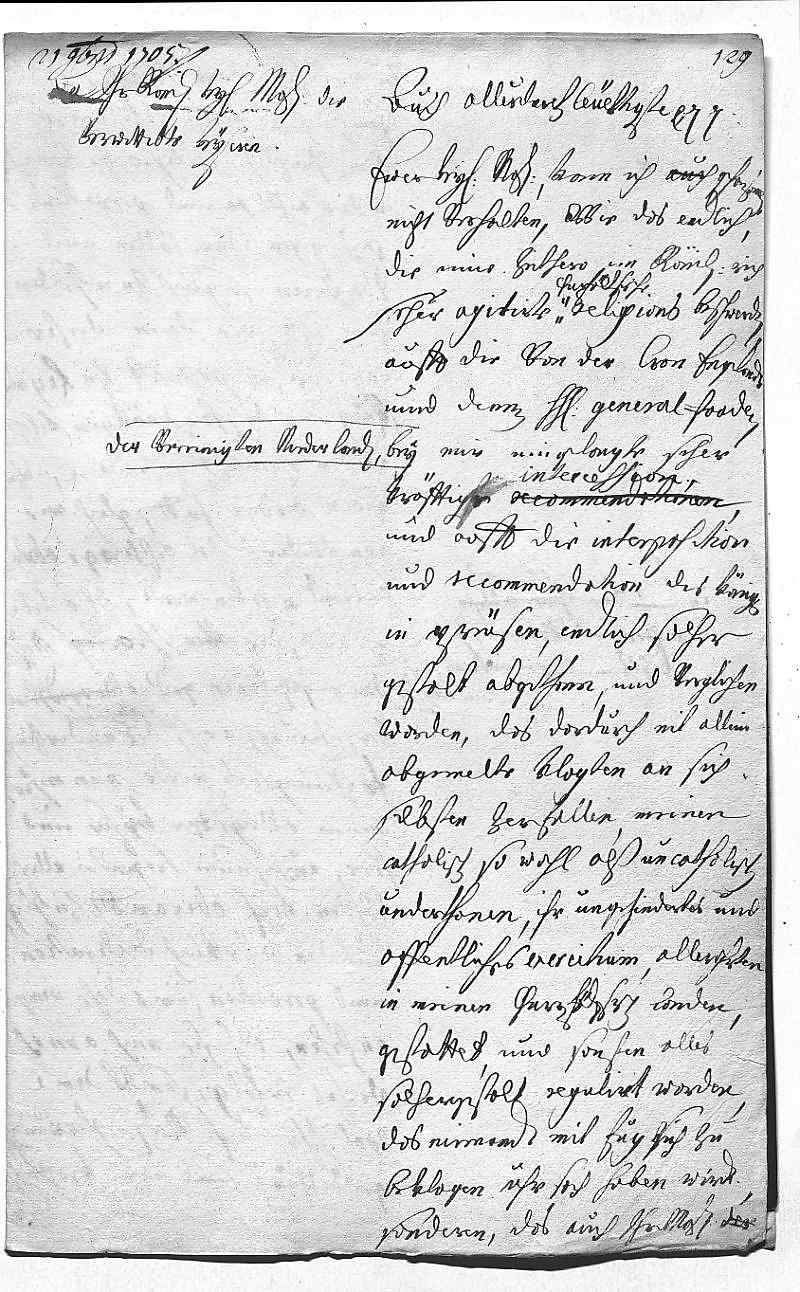 21 9bris 1705.
129
Ihr Röm: kays: May: der
verwittibte kayserin.
Auch allerdurchleüchtigste pp.
Ewer kays: May: kann ich auch
nicht verhalten, Wie das endlich,
die nun Zeithero im Röm:
agitirte religions beschwerde,
auff die von der Cron Engelandt
unnd denen HH: general staaden,
der Vereinigten Niederlandt,
bey mir eingelangte sehr
kräfftige recommendationen,
intercession,
und auff die interposition
und recommendation des königs
in Preüsen, endlich solcher
gestalt abgethan, und verglichen
worden, das dardurch nit allein
obgemelte klagten an sich
selbsten zerfallen, meinen
catholisch so wohl alß uncatholisch
underthanen, ihr ungehindertes und
offentliches exercitium, aller orten
in meinen landen,
gestattet, und sonsten alles
solchergestalt regulirt worden,
das niemandt mit fug sich zu
beklagen uhrsach haben wird,
sonderen, das auch Ihr May: der